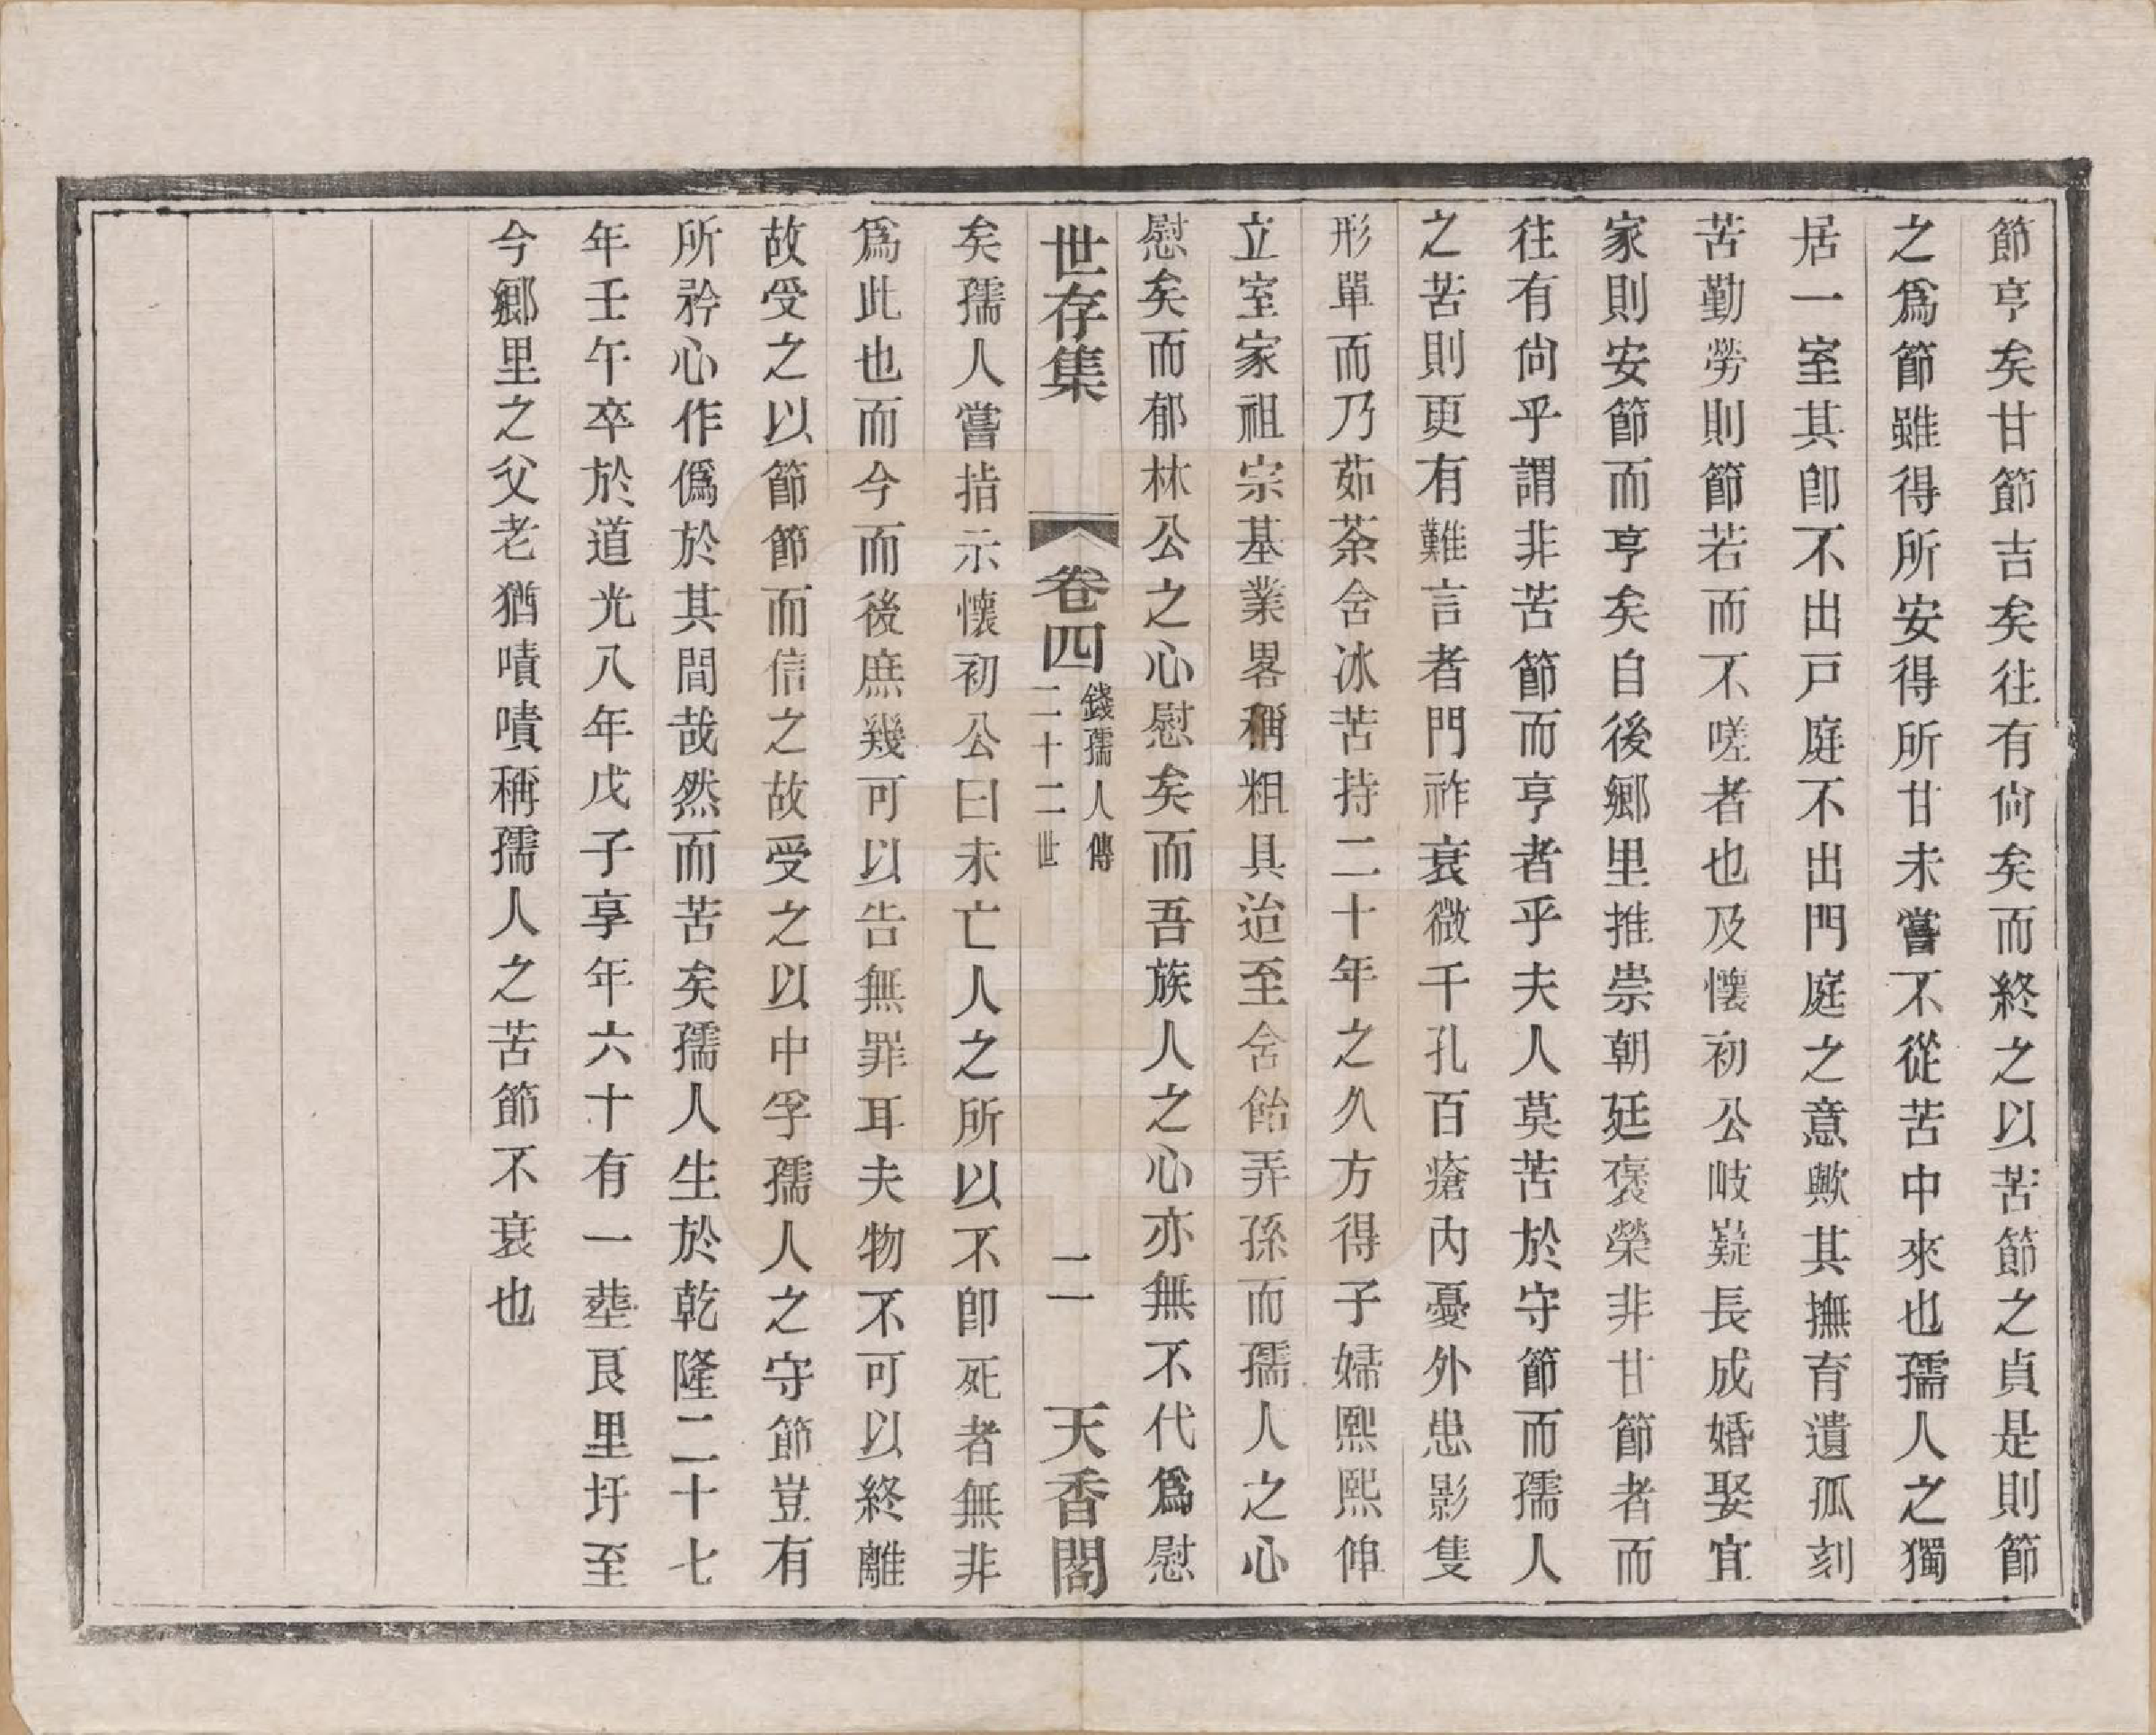 節亨矣甘節吉矣往有尙矣而終之以苦節之貞是則節
之爲節雖得所安得所甘未嘗不從苦中來也孺人之獨
居一室其卽不出戸庭不出門庭之意歟其撫育遺孤刻
苦勤勞則節若而不嗟者也及懷初公岐嶷長成婚娶宜
家則安節而亨矣自後鄕里推崇朝廷褒榮非甘節者而
往有尙乎謂非苦節而亨者乎夫人莫苦於守節而孺人
之苦則更有難言者門祚衰微千孔百瘡內憂外患影隻
形單而乃茹荼含冰苦持二十年之久方得子婦熙熙伸
立室家祖宗基業畧稱粗具迨至含飴弄孫而孺人之心
慰矣而郁林公之心慰矣而吾族人之心亦無不代爲慰
世存集 卷四 錢孺人傳 二十二世 二 天香閣
矣孺人嘗指示懷初公曰未亡人之所以不卽死者無非
爲此也而今而後庶幾可以告無罪耳夫物不可以終離
故受之以節節而信之故受之以中孚孺人之守節豈有
所矜心作僞於其間哉然而苦矣孺人生於乾隆二十七
年壬午卒於道光八年戊子享年六十有一塟艮里圩至
今鄕里之父老猶嘖嘖稱孺人之苦節不衰也